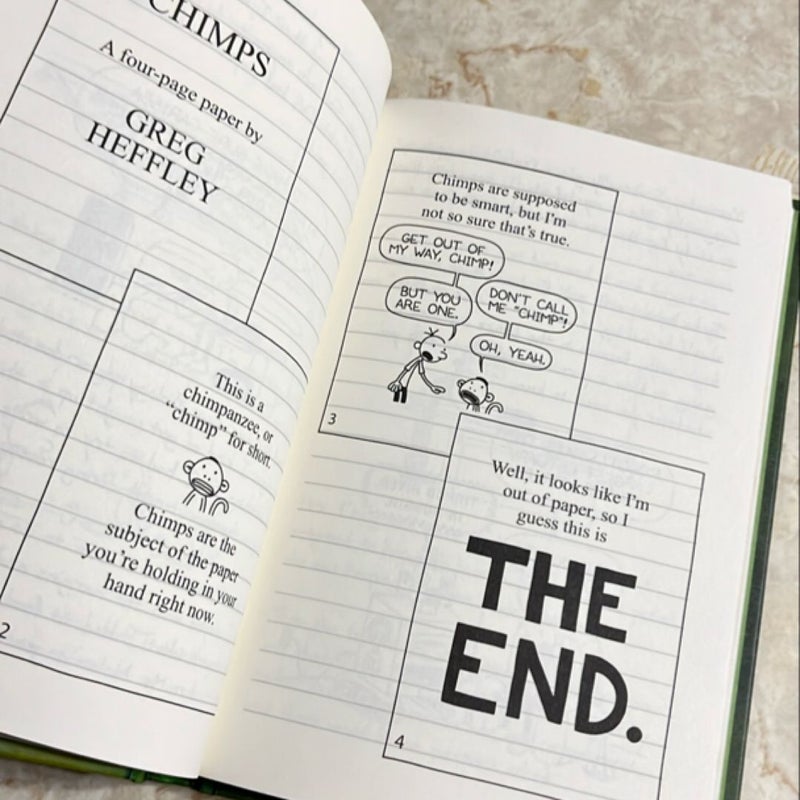 CHIMPS
A four-page paper by
GREG
HEFFLEY
This is a
chimpanzee, or
“chimp” for short.
Chimps are the
subject of the paper
you’re holding in your
hand right now.
2
Chimps are supposed
to be smart, but I’m
not so sure that’s true.
GET OUT OF
MY WAY, CHIMP!
BUT YOU
ARE ONE.
DON'T CALL
ME "CHIMP"!
OH, YEAH.
3
Well, it looks like I’m
out of paper, so I
guess this is
THE
END.
4